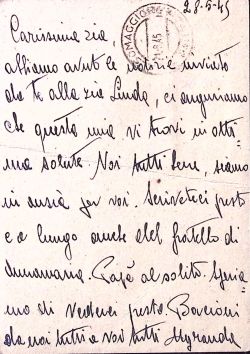 28-5-45
Carissima zia
abbiamo avute le notizie inviate
da te alla zia Linda, ci auguriamo
che questa mia vi trovi in otti-
ma salute. Noi tutti bene, siamo
in ansia per voi. Scriveteci presto
e a lungo anche del fratello di
Annamaria. Papà al solito. Speria-
mo di vederci presto. Bacioni
da noi tutti a voi tutti